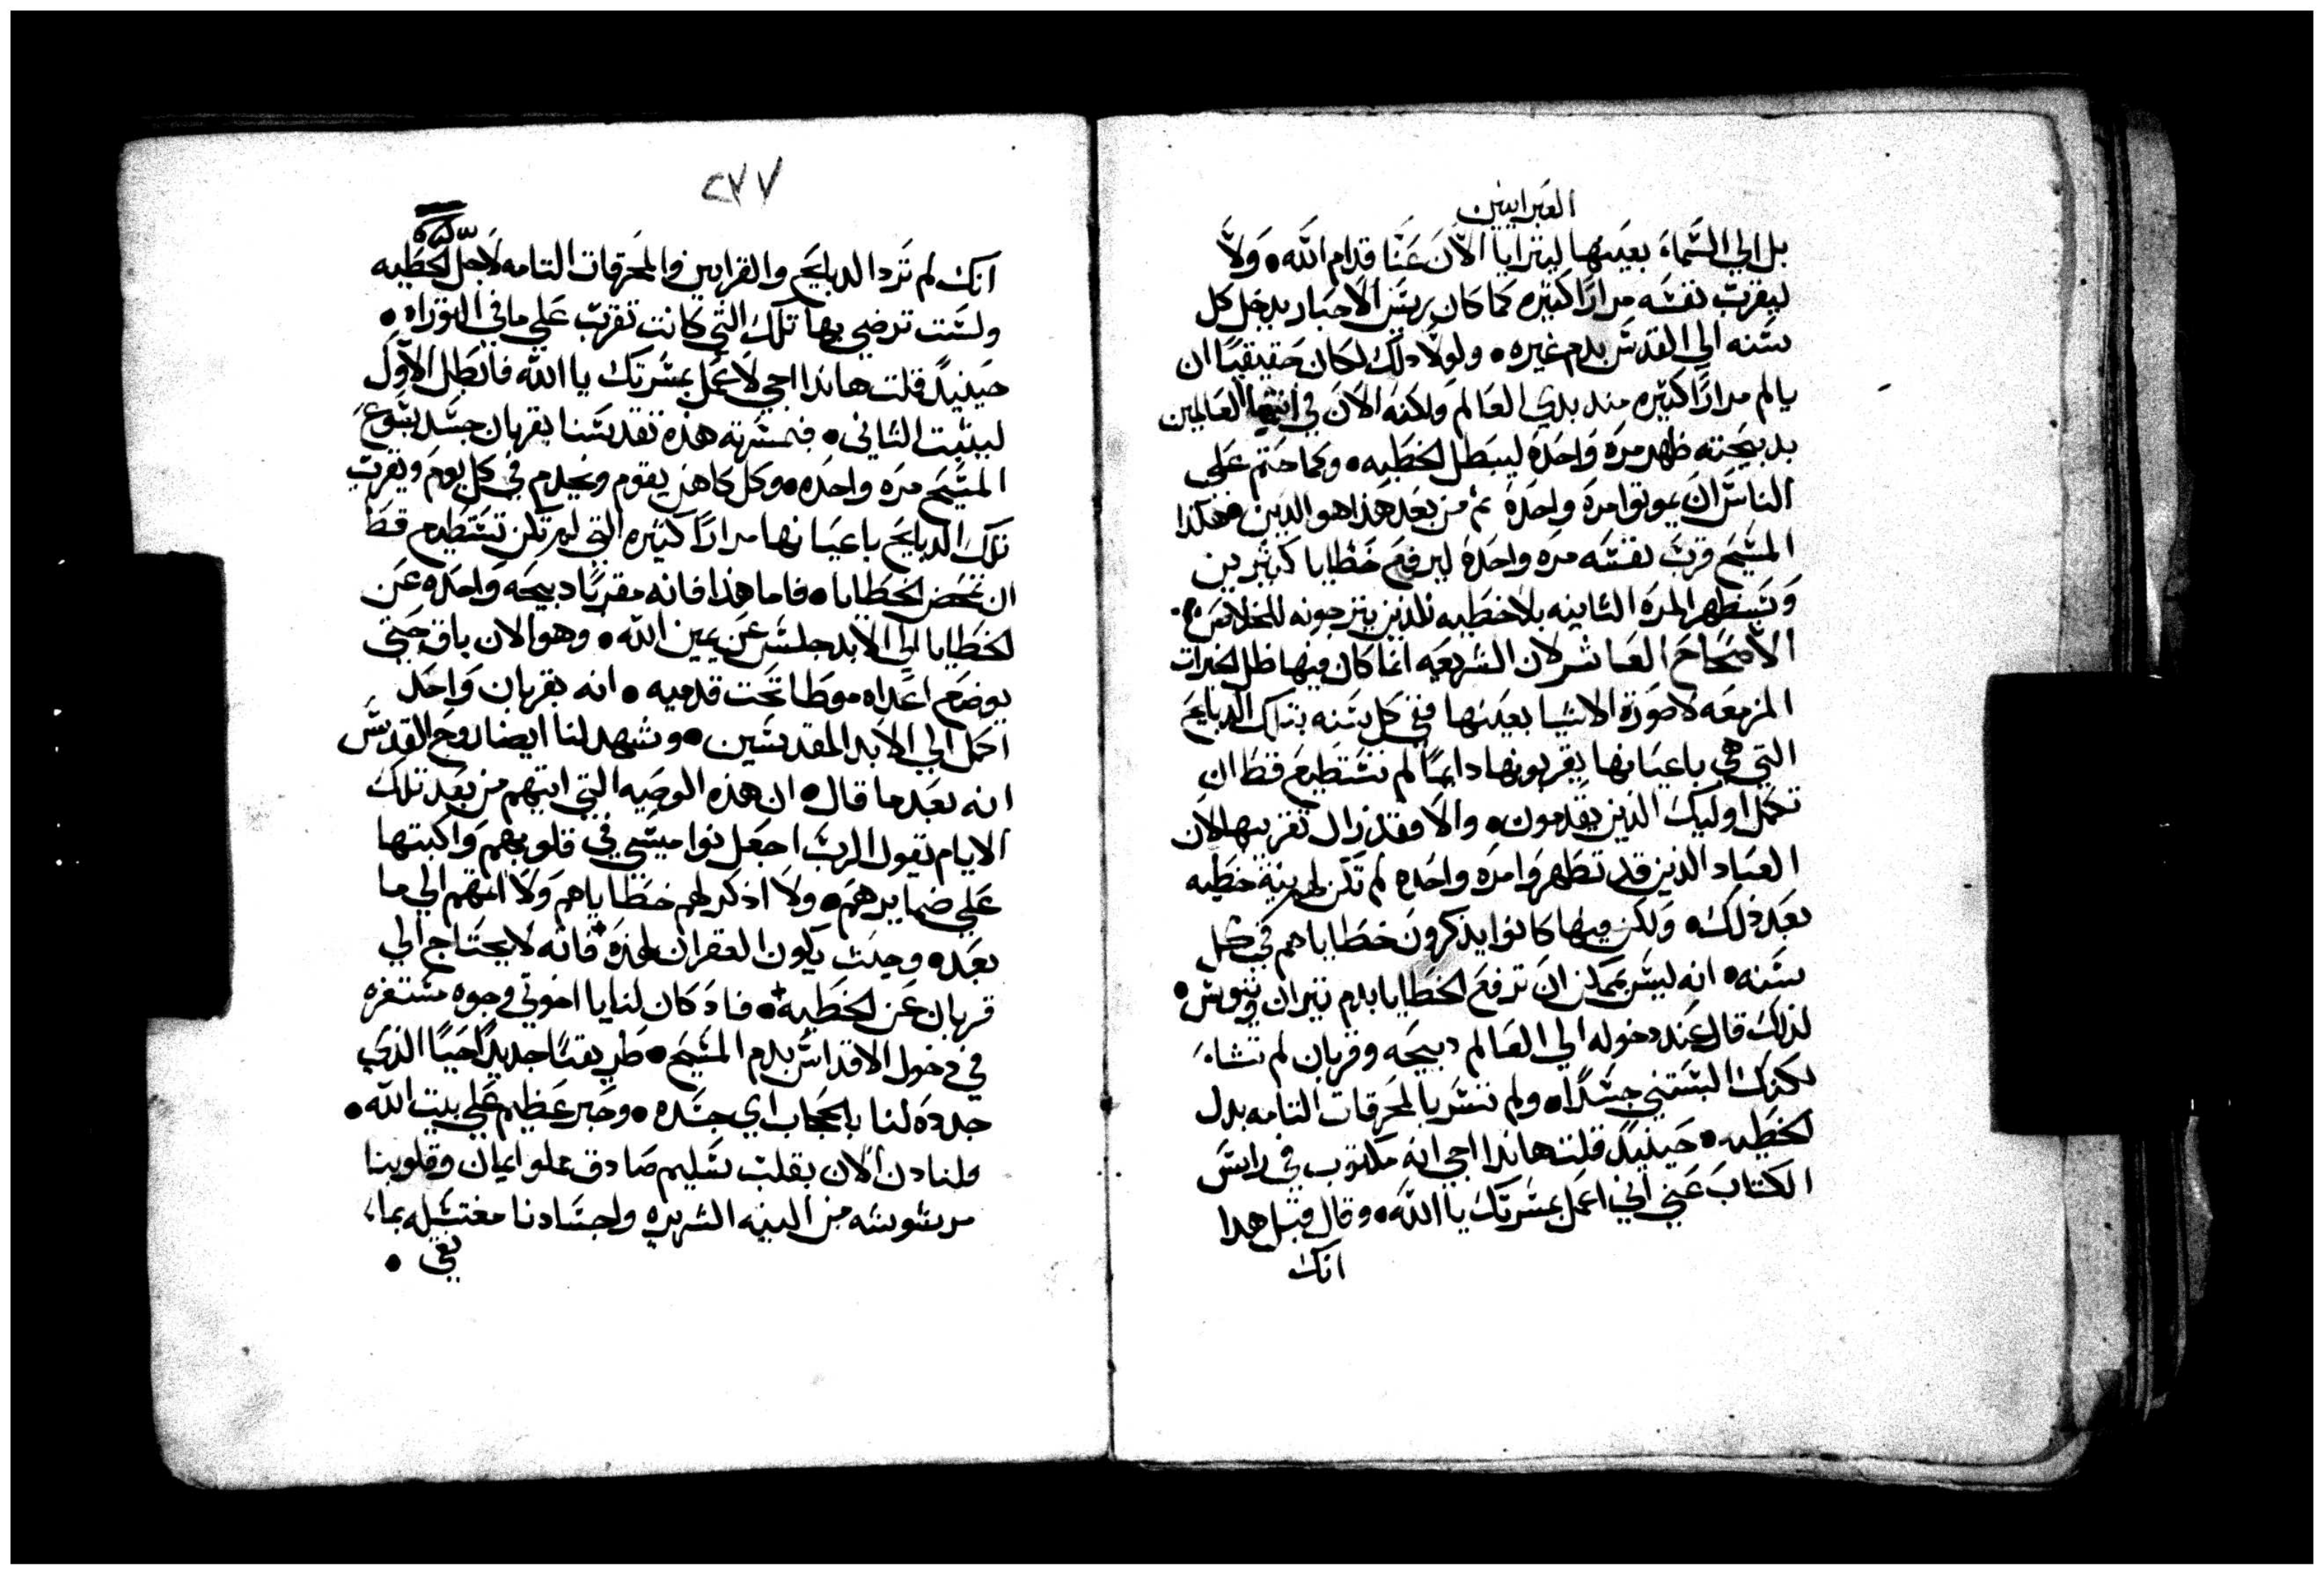 العبرانيين
بل الي السَّماء بعينها ليترايا الآن عَنّا قدام الله • وَلاَ
ليقرب نفسَه مرارًا كتيره كما كان ريسَ الاحبار يدخل كل
سَنه الي القدسَ بدم غيره • ولولا دلك لكان حَقيقيًا ان
يالم مرارًا كتيره مند بدي العَالم وَلكنه الآن في انتها العَالمين
بدبيحَته ظهر مرَه وَاحدَة ليبطل الخطيه • وكما حتم عَلي
الناسَ ان يموتوا مرَة واحدَة تم من بَعد هَذا هو الدين فهكذا
المسَيح قربَ نفسَه مره واحدَة ليرفع خَطايا كتيرين
وَسَيظهر المرَة التانيه بلا خطيه للذين يترجونه للخلاصَ
الآصحَاحَ العَاشر لان الشريعَه انما كان فيها ظل الخيرات
المزمعَه لا صَورَة الاشيا بعَينها ففي كل سَنه بتلك الدبايحَ
التي هي باعيَانها يقربونها دايمًا لم تسَتَطيعَ قط ان
تكمل اوليك الذين يقدمون • والا فقد زال تقريبها لان
العبَاد الذين قد تطَهروَا مرَه واحَده لم تَكن لهم نيَة خطَيه
بَعَد ذلك • وَلكن فيها كانوا يذكروَن خطَاياهم في كل
سَنه • انه ليسَ يمكن ان ترفعَ الخطَايا بدم تيران وتيوسَ •
لذلك قال عَند دخوله الي العَالم دبيحَه وقربان لم تشاءَ
لكنك البسَتني جسَدًا • ولم تسَر بالمحَرقات التامه بدل
الخطَيه • حَينيدً قلت هاندا اجي انه مكتوب في راسَ
الكتابَ عَني اني اعمل بمسَرتك يا الله • وقال قبل هدا
انك
٢٧٧
انك لم تَرد الدبايحَ والقرابين والمحَرقات التامه لاَجل الخطَيه
ولسَت ترضي بها تلك التي كانت تقربَ عَلي ما في التوراه •
حَينيدً قلت هاندا اجي لاَعمل بمسَرتك يا الله فابَطل الآوَل
ليتبت التاني • فبمسَرته هذه تقدسَنا بقربان جسَد يسَوعَ
المسَيحَ مرَه واحدَه • وكل كاهن يقوم ويخدم في كل يوم ويقربَ
تلك الدبايحَ باعيَانها مرارًا كتيره التي لم تكن تسَتطيع قطَ
ان تمحَض الخطَايا • فاما هذا فانه مقربًا دبيحَه وَاحَدَه عَن
الخطَايا الي الابد جلسَ عَن يمين الله • وهو الان باق حَتي
يوضعَ اعَداه موطَا تحَت قدميه • انه بقربان وَاحَد
اكمل الي الابد المقدسَين • ويشهد لنا ايضا روحَ القدسَ
انه بعَد ما قال • ان هذه الوصَيه التي اتيهم من بَعَد تلك
الايام يقول الربَ اجعَل نواميسَي في قلوبهم وَاكبتها
عَلي ضمايرهم • ولا اذكر لهم خطَاياهم وَلا اتمهم الي ما
بعَده وحيت يكون الغفران لهذه فانه لا يحتَاج الي
قربان عَن الخطَيه • فاد كان لنا يا اخوتي وجوه مسَتغره
في دخول الاقداسَ بدم المسَيحَ • طَريقتًا جديدًا حَيًا الذي
جدده لنا بالحجَاب اي جسَده • وحَبر عَظيم عَلي بيت الله •
فلنادن الآن بقلب سَليم صَادق علو ايمان وقلوبنا
مرشوشه من النيه الشريره واجسَادنا مغتسَله بماء
نقي •